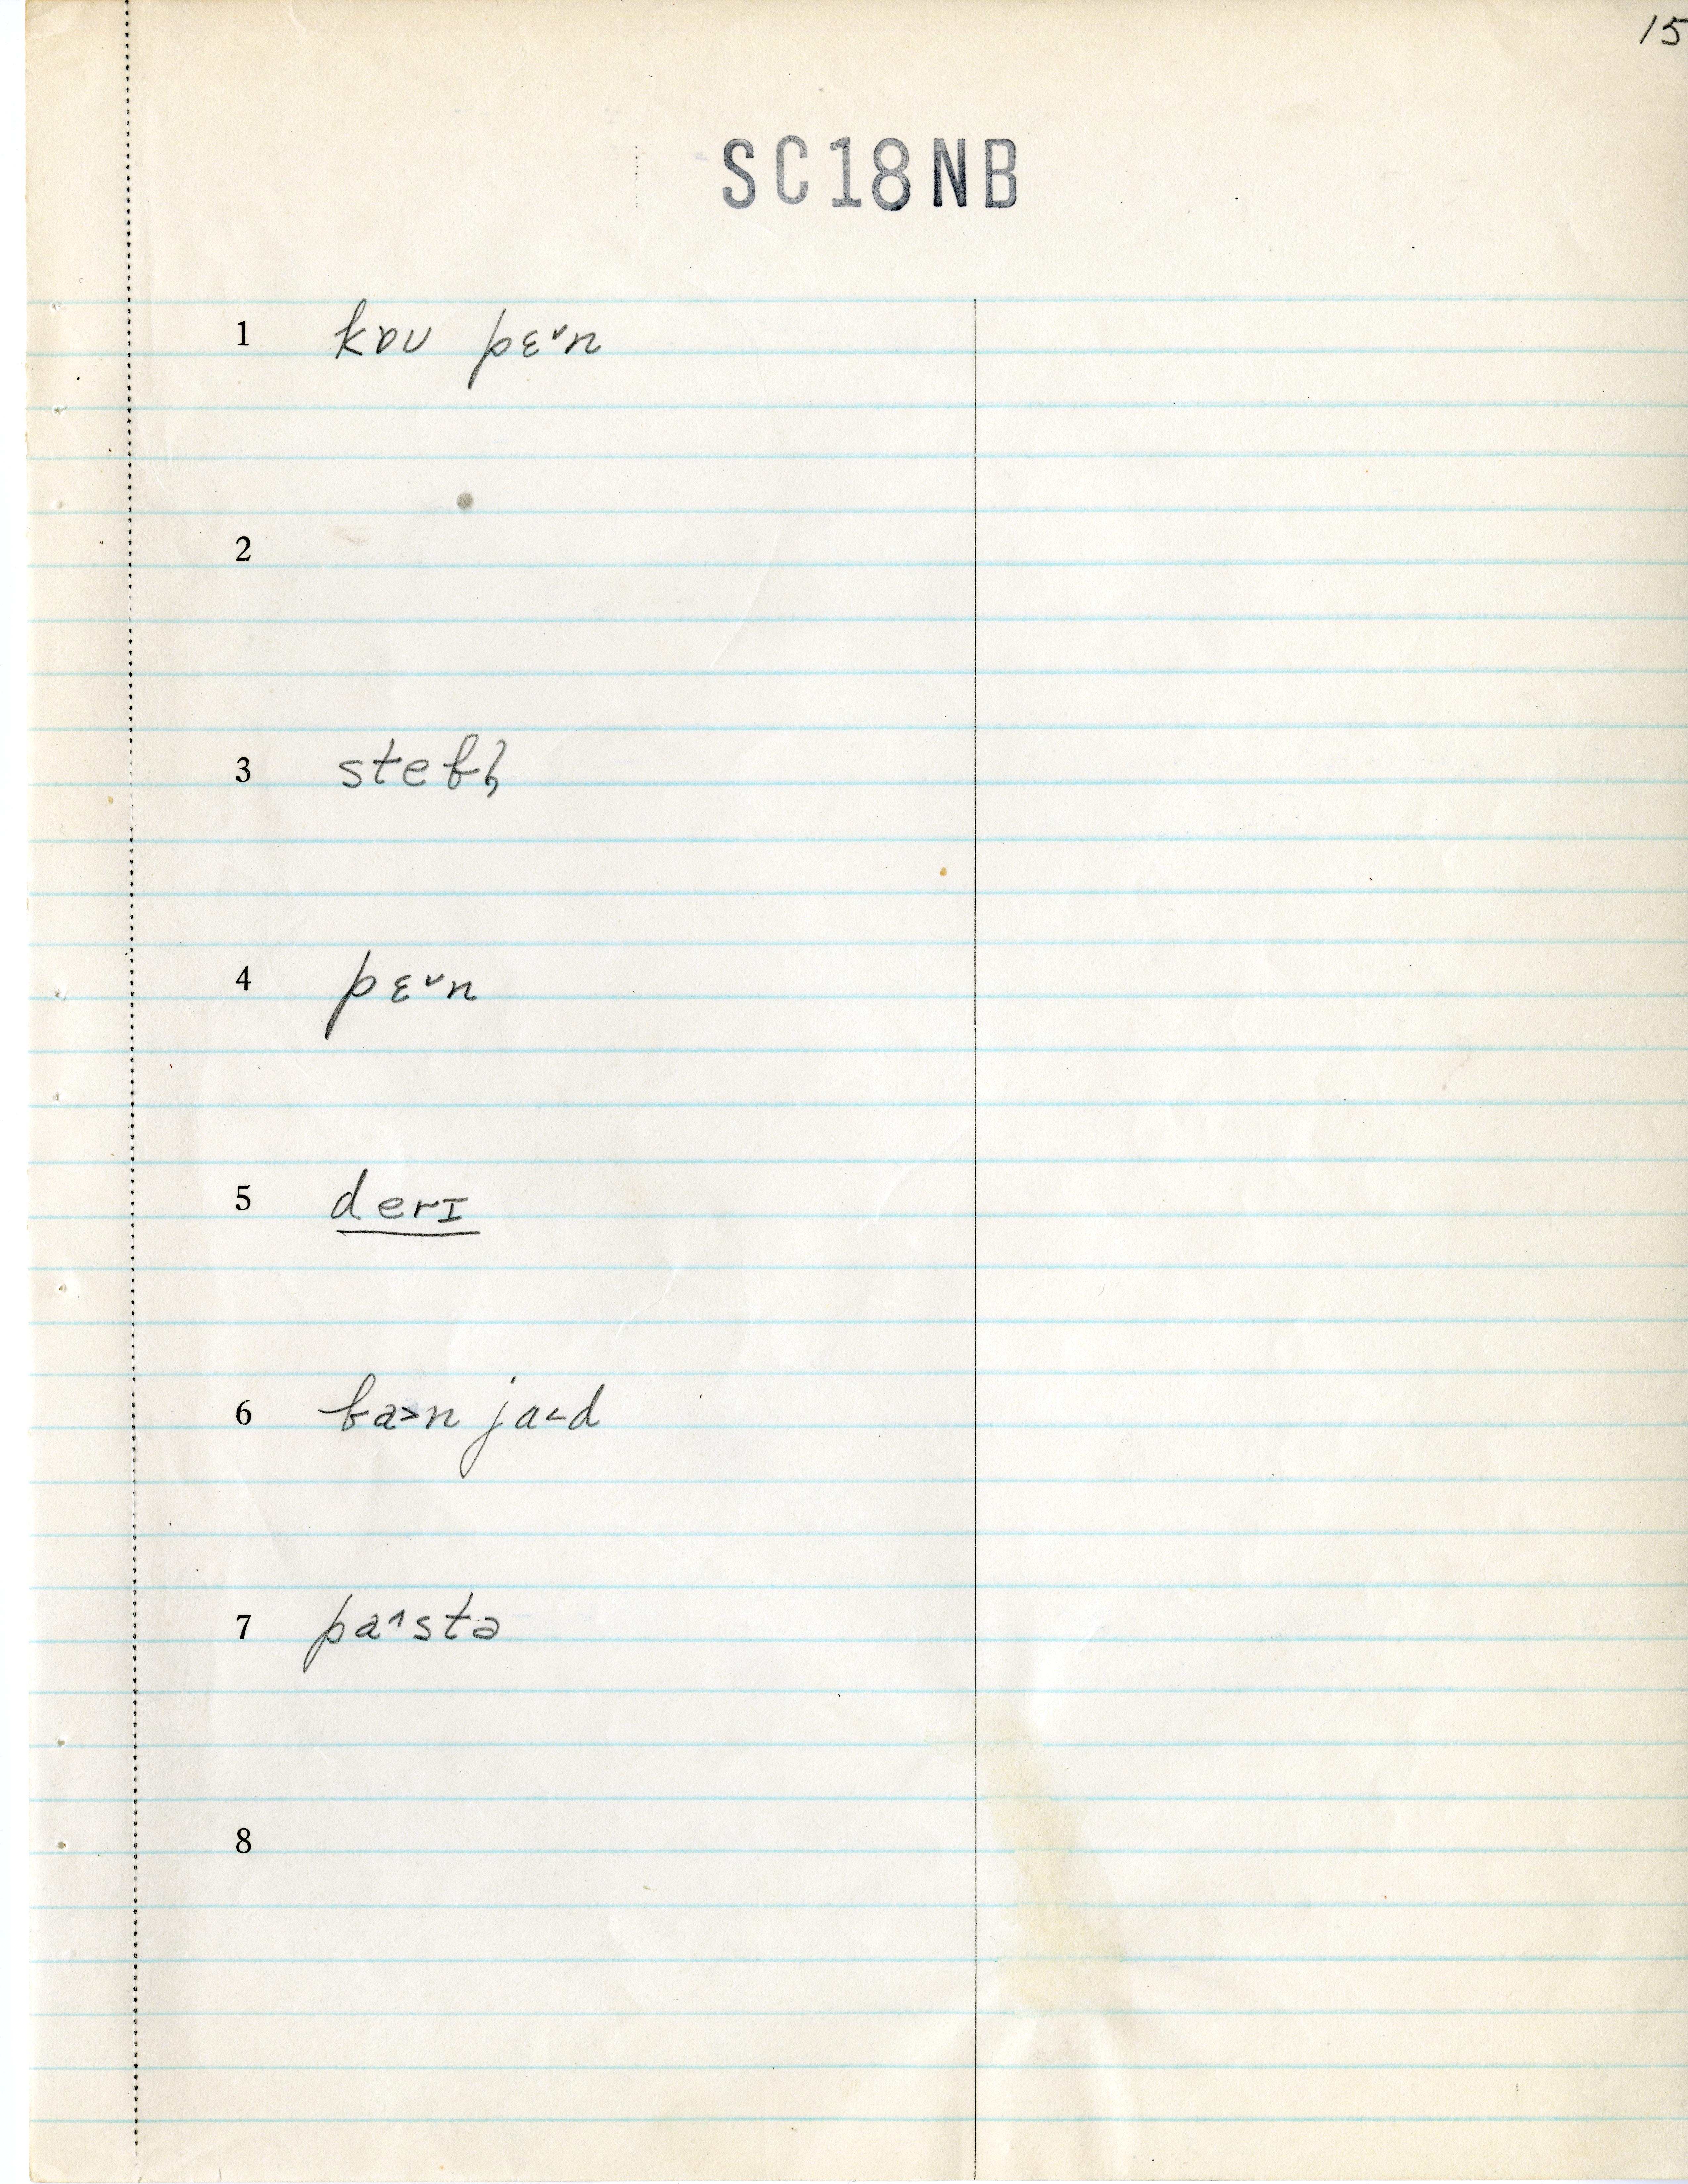 15
SC18NB
1 kɒu pɛ˅n
2
3 stebl̩
4 pɛ˅n
5 derɪ
6 ba˃n ja˂d
7 pa˄stə
8